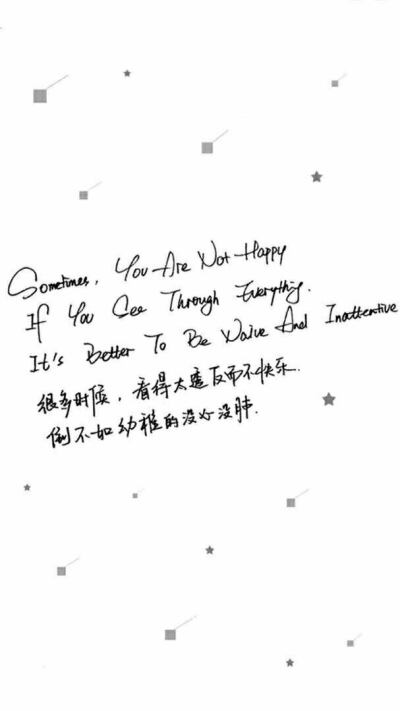 Sometimes, You Are Not Happy
If You See Through Everything.
It's Better To Be Naive And Inattentive
很多时候，看得太透反而不快乐.
倒不如幼稚的没心没肺.